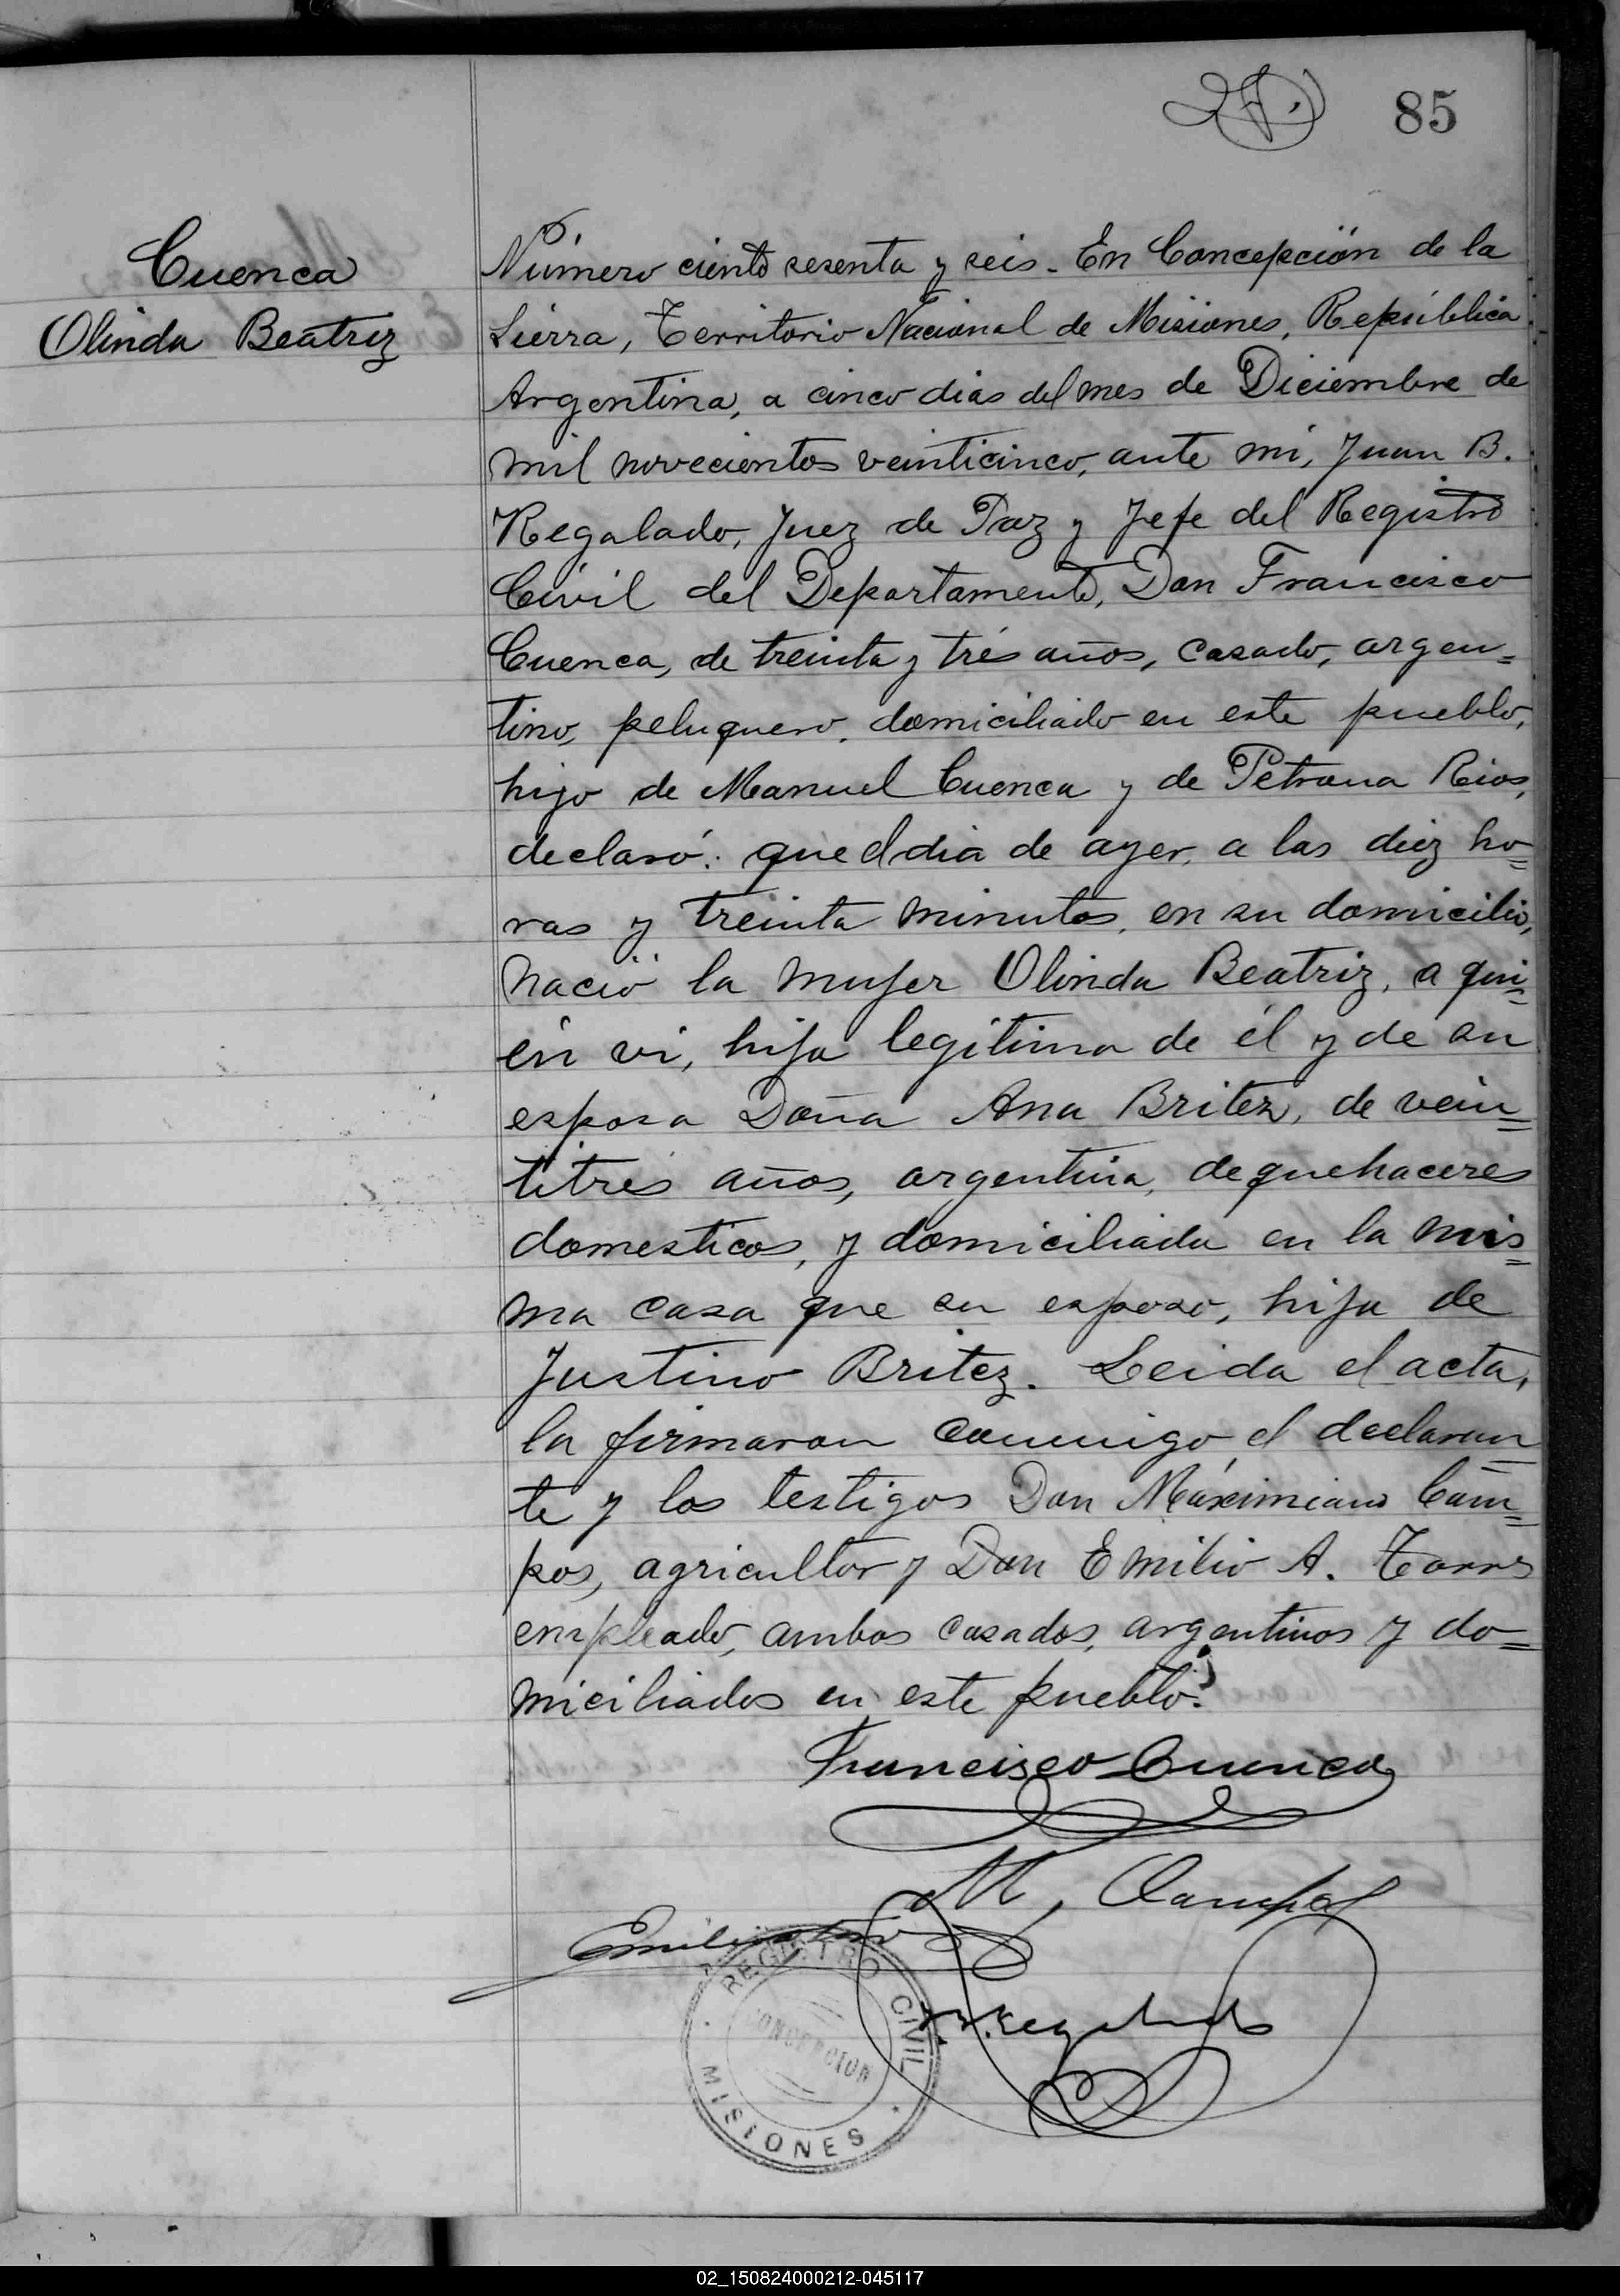 85
Cuenca
Olinda Beatriz
Número ciento sesenta y seis. En Concepción de la
Sierra, Territorio Nacional de Misiones, República
Argentina, a cinco dias del mes de Diciembre de
mil novecientos veinticinco, ante mi, Juan B.
Regalado, Juez de Paz y Jefe del Registro
Civil del Departamento, Don Francisco
Cuenca, de treinta y tres años, casado, argen=
tino, peluquero, domiciliado en este pueblo,
hijo de Manuel Cuenca y de Petrona Rios,
declaró: que el dia de ayer, a las diez ho=
ras y treinta minutos, en su domicilio,
nació la mujer Olinda Beatriz, a qui=
én vi, hija legítima de él y de su
esposa Doña Ana Britez, de vein=
titrés años, argentina, de quehaceres
domesticos, y domiciliada en la mis=
ma casa que su esposo, hija de
Justino Britez. Leida el acta,
la firmaron conmigo, el declaran=
te y los testigos Don Máximiano Cam=
pos, agricultor y Don Emilio A. Torres
empleado, ambos casados, argentinos y do=
miciliados en este pueblo.
Francisco Cuenca
M. Campos
REGISTRO CIVIL
CONCEPCION
MISIONES
02_150824000212-045117